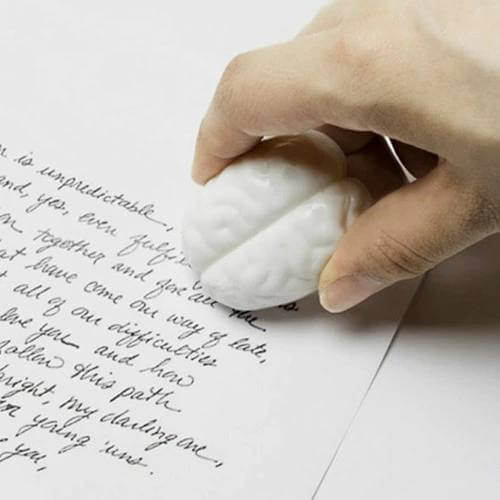 is unpredictable,
and, yes, even
together and for all the
have come our way of late,
all of our difficulties
love you and how
follow this path
bright my darling one,
young 'uns.
you,